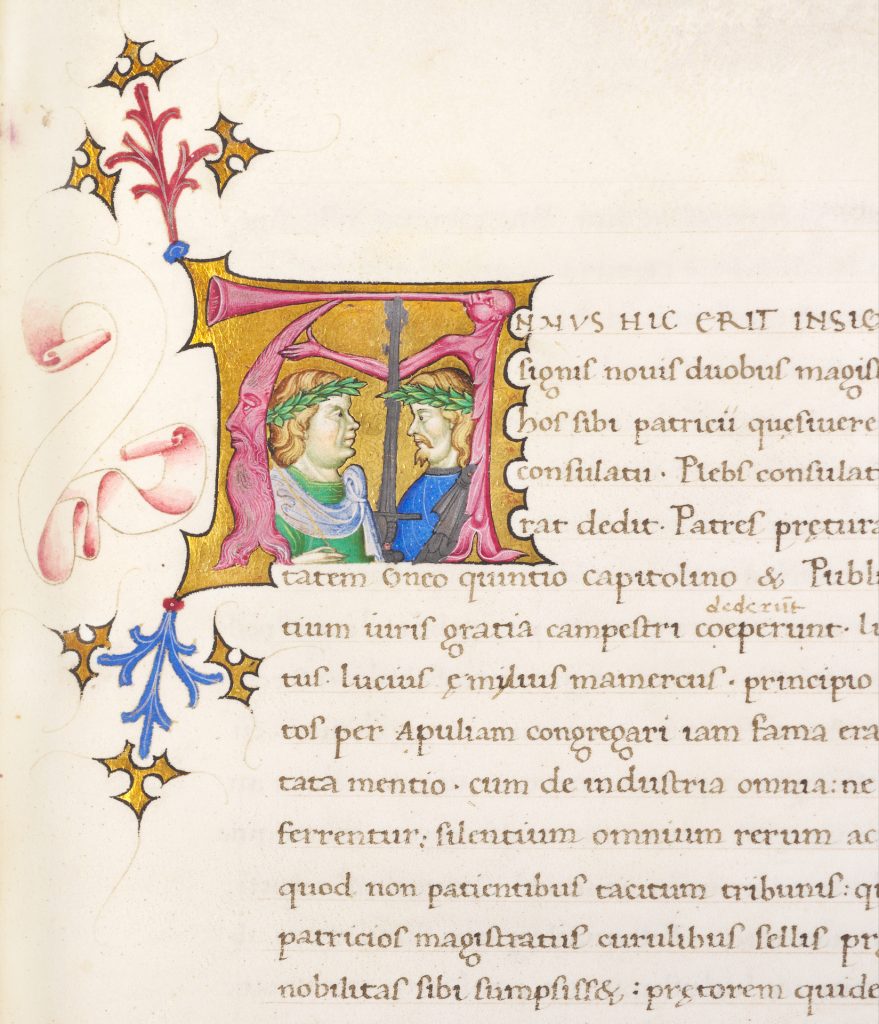 ANNUS HIC ERIT INSIG
signis nouis duobus magist
hos sibi patricii quęsiuere
consulatu · Plebs consulat
rat dedit · Patres prętura
tatem Gneo quintio capitolino & Publi
dederũt
tium iuris gratia campestri coeperunt · li
tus · lucius ęmylius mamercus · principio
tos per Apuliam congregari iam fama era
tata mentio · cum de industria omnia: ne
ferrentur; silentium omnium rerum ac
quod non patientibus tacitum tribunis: qu
patricios magistratus curulibus sellis prę
nobilitas sibi sumpsiss&: prętorem quide